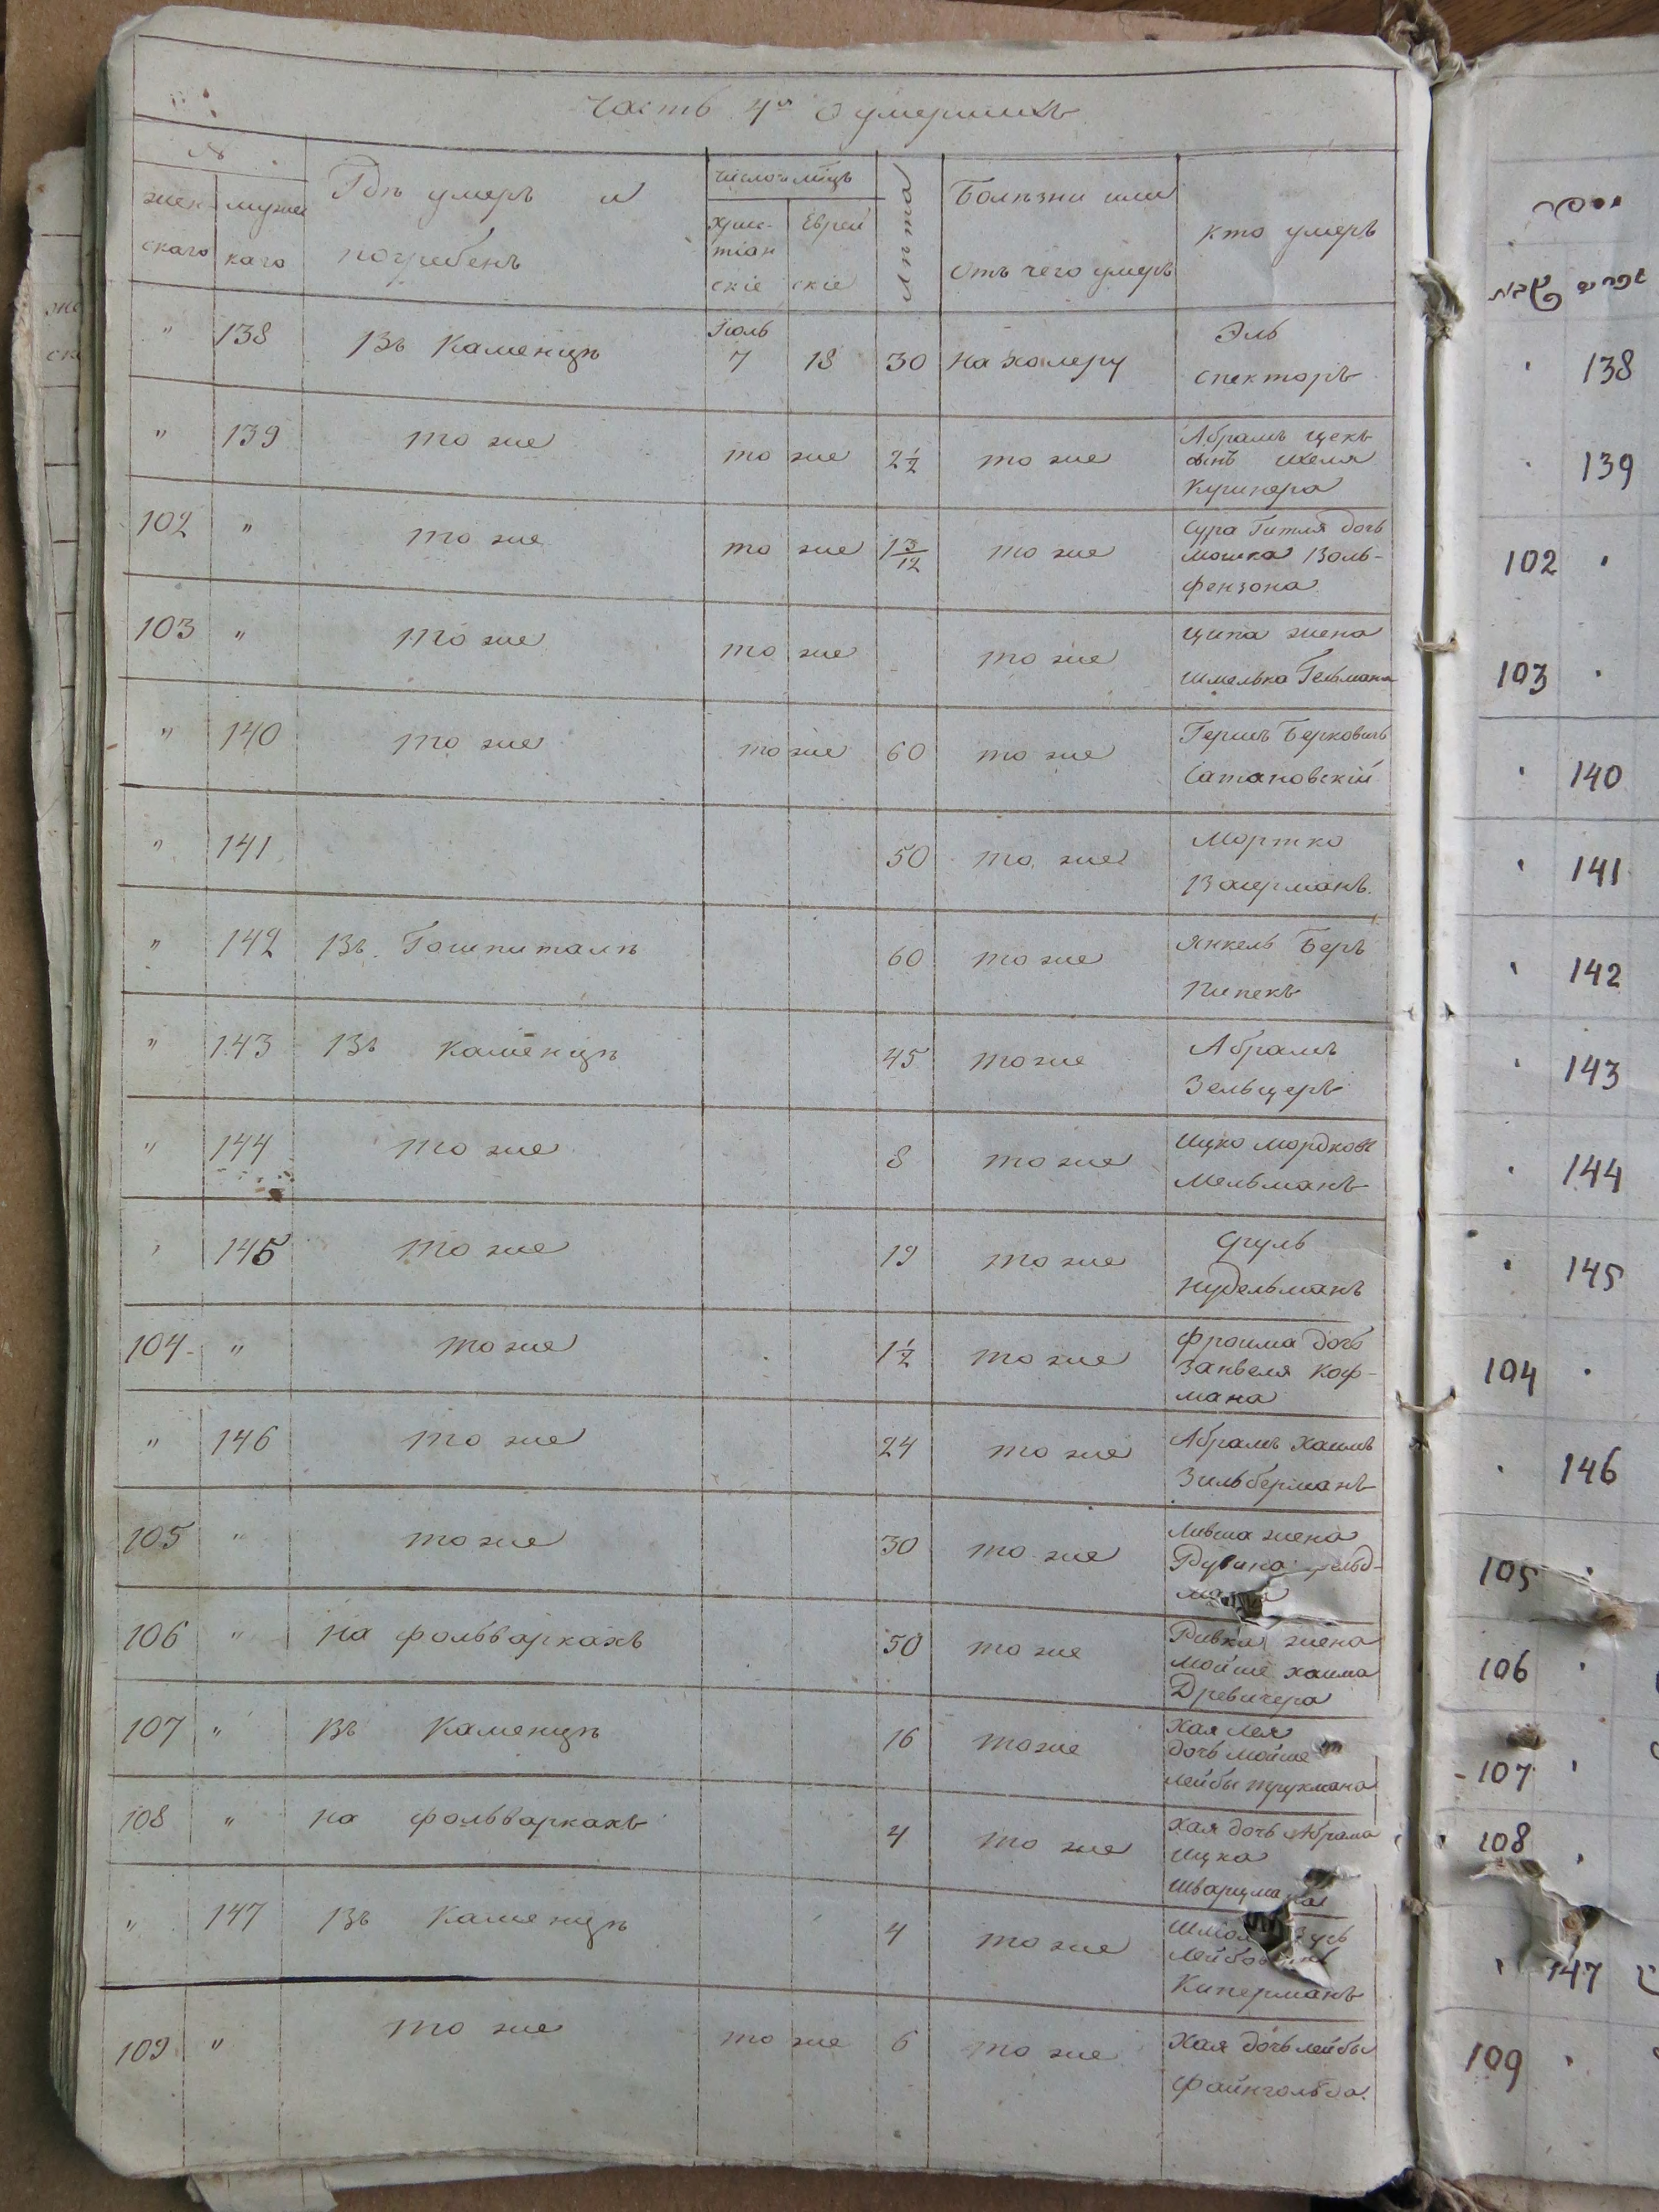 Часть 4я О умершихъ
№
женскаго мужескаго
Гдѣ умеръ и погребенъ
число и мѣсяцъ
Христіанскіе Еврейскіе
лѣта
Болѣзни или отъ чего умеръ
кто умеръ
" 138 Въ Каменцѣ Іюль 7 18 30 на холеру Эль
Спекторъ
" 139 то же то же 2½ то же Абрамъ Ицекъ
сынъ Шеля
Кушнера
102 " то же то же 1 3/12 то же Сура Гитля дочь
Мошка Воль-
фензона
103 " то же то же то же Ципа жена
Шмелька Гельмана
" 140 то же то же 60 то же Гершъ Берковичъ
Сатановскій
" 141 50 то же Мортко
Ваерманъ.
" 142 Въ Гошпиталѣ 60 то же Янкель Беръ
Пипекъ
" 143 Въ Каменцѣ 45 то же Абрамъ
Зельцеръ
" 144 то же 8 то же Ицко Мордков
Мельманъ
" 145 то же 19 то же Сруль
Нудельманъ
104 " то же 1½ то же Фроима дочь
Занвеля Коф-
мана
" 146 то же 24 то же Абрамъ Хаимъ
Зильберманъ
105 " то же 30 то же Ливша жена
Рувина
106 " на фольваркахъ 50 то же Ривка жена
Мойше Хаима
Древичера
107 " Въ Каменцѣ 16 то же Хая Лея
дочь Мойше
Лейбы Трукмана
108 " на фольваркахъ 4 то же Хая дочь Абрама
Ицка
Шварцмана
" 147 Въ Каменцѣ 4 то же
Киперманъ
109 " то же то же 6 то же Хая дочь Лейбы
Файнгольда.
138
139
102
103
140
141
142
143
144
145
104
146
105
106
107
108
147
109